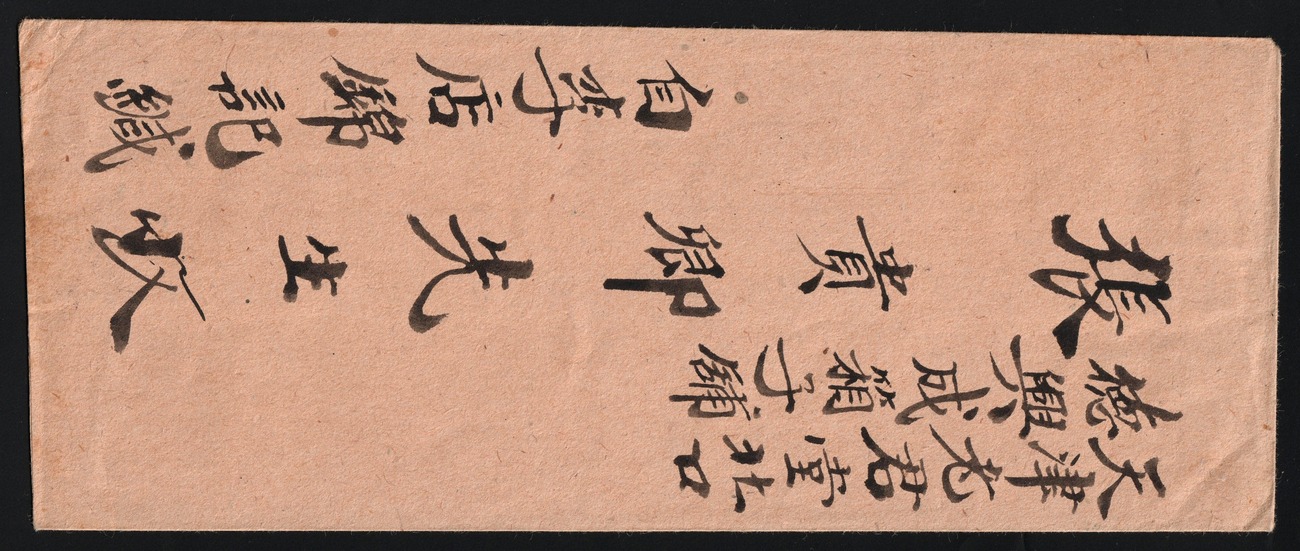 天津老君堂北口
德興成箱子舖
張貴卿先生收
自辛店錦記緘